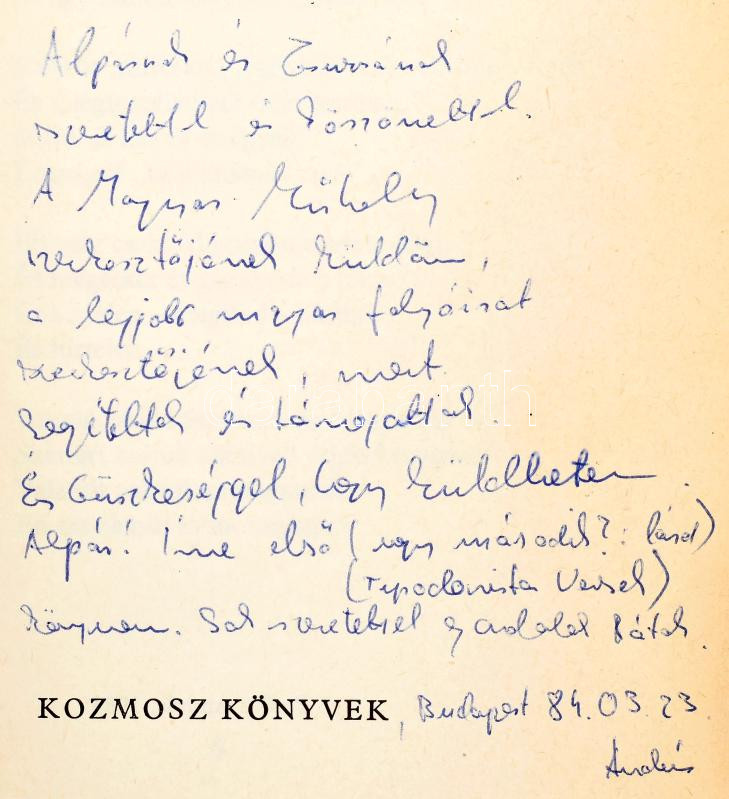 Alpárnak és Zsuzsának
szeretettel és köszönettel.
A Magyar Műhely
szerkesztőjének küldöm,
a legjobb magyar folyóirat
szerkesztőjének, mert
segítettek és támogattak.
És büszkeséggel, hogy küldhetem.
Alpár! Íme első (vagy második?: lásd)
(Tipoclonista Versek)
könyvem. Sok szeretettel
KOZMOSZ KÖNYVEK, Budapest 84.03.23.
András